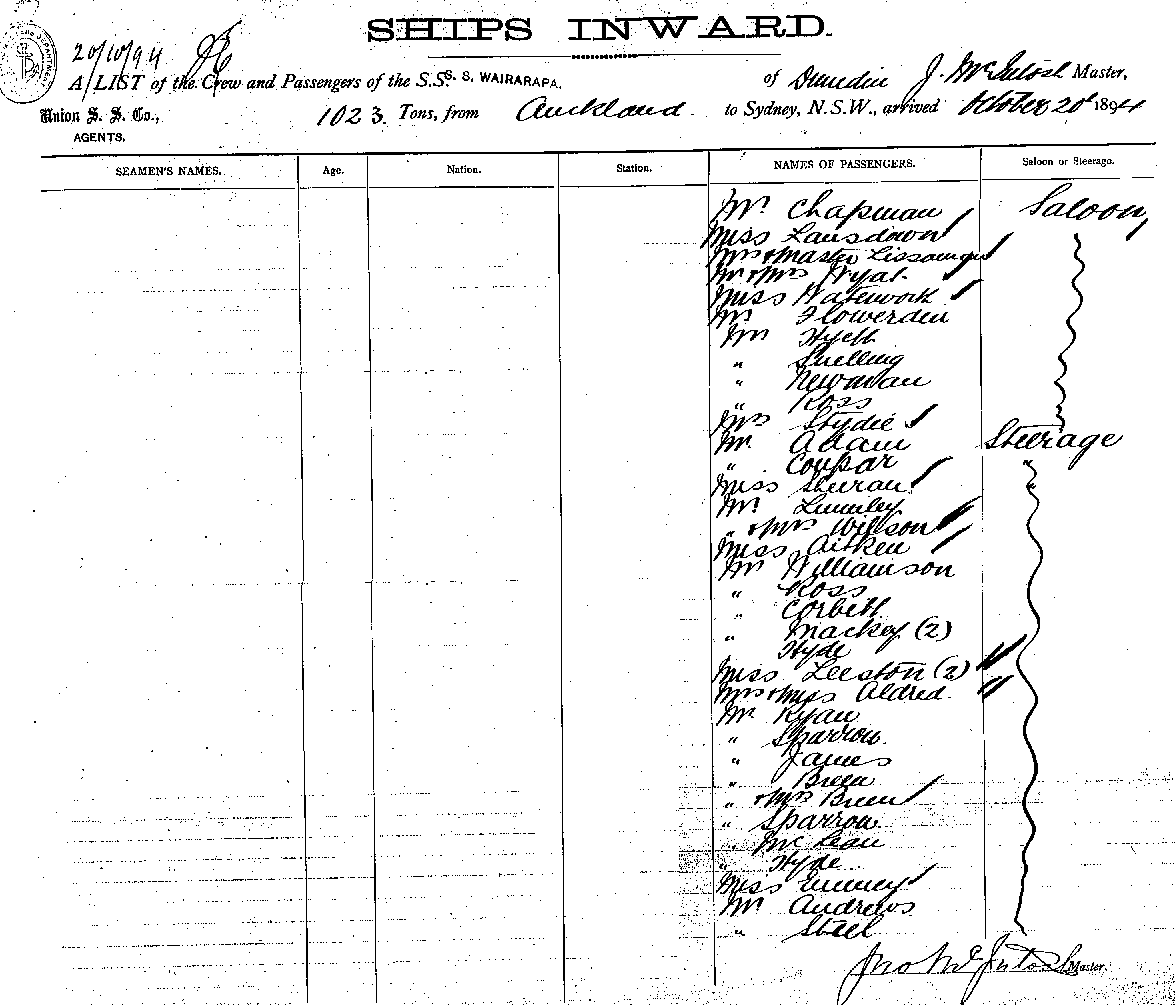 SHIPS INWARD.
20/10/94
A LIST of the Crew and Passengers of the S.S. S. S. WAIRARAPA. of Dunedin J. McIntosh Master,
Union S. S. Co., 1023 Tons, from Auckland to Sydney, N.S.W., arrived October 20th 1894
AGENTS.
SEAMEN'S NAMES. Age. Nation. Station. NAMES OF PASSENGERS. Saloon or Steerage.
Mr. Chapman Saloon
Miss Lansdown
Mrs & Master
Mr & Mrs Wyat
Miss Waterwork
Mr Flowerden
Mr Hyett
" Snelling
" Newman
" Ross
Mrs Stydie
Mr. Adam Steerage
" Coupar "
Miss Sheran
Mr. Lumley
" & Mrs Willson
Miss Aitken
Mr Williamson
" Ross
" Corbett
" Mackey (2)
Hyde
Miss Leeston (2)
Mrs & Miss Aldred
Mr. Ryan
" Sparrow
" James
" Breen
" & Mrs Breen
" Sparrow
" McLean
" Hyde
Miss
Mr. Andrews
" Steel
Jno McIntosh Master.